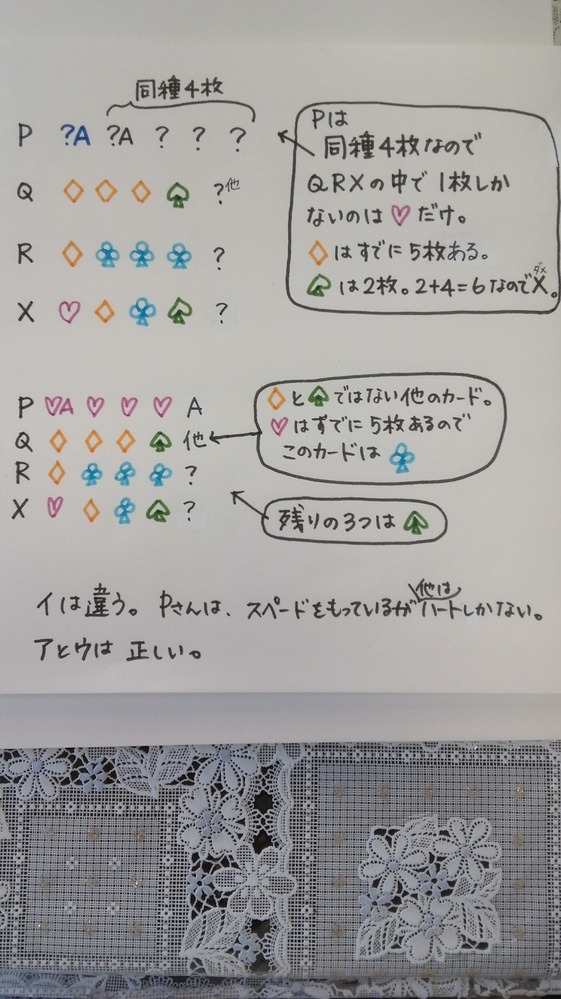 同種4枚
P ?A ?A ? ? ?
Q ♢ ♢ ♢ ♤ ?他
R ♢ ♧ ♧ ♧ ?
X ♡ ♢ ♧ ♤ ?
Pは
同種4枚なので
QRXの中で1枚しか
ないのは♡だけ。
♢はすでに5枚ある。
♤は2枚。2+4=6なのでX。
ダメ
P ♡A ♡ ♡ ♡ A
Q ♢ ♢ ♢ ♤ 他
R ♢ ♧ ♧ ♧ ?
X ♡ ♢ ♧ ♤ ?
♢と♤ではない他のカード。
♡はすでに5枚あるので
このカードは♧
残りの3つは♤
イは違う。Pさんは、スペードをもっているが他はハートしかない。
アとウは正しい。